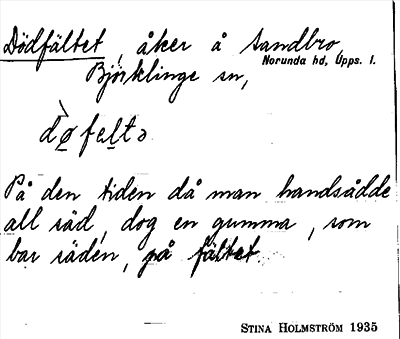 Dödfältet, åker å Sandbro,
Norunda hd, Upps. l.
Björklinge sn,
dø̱feḻtə
På den tiden då man handsådde
all säd, dog en gumma, som
bar säden, på fältet
STINA HOLMSTRÖM 1935